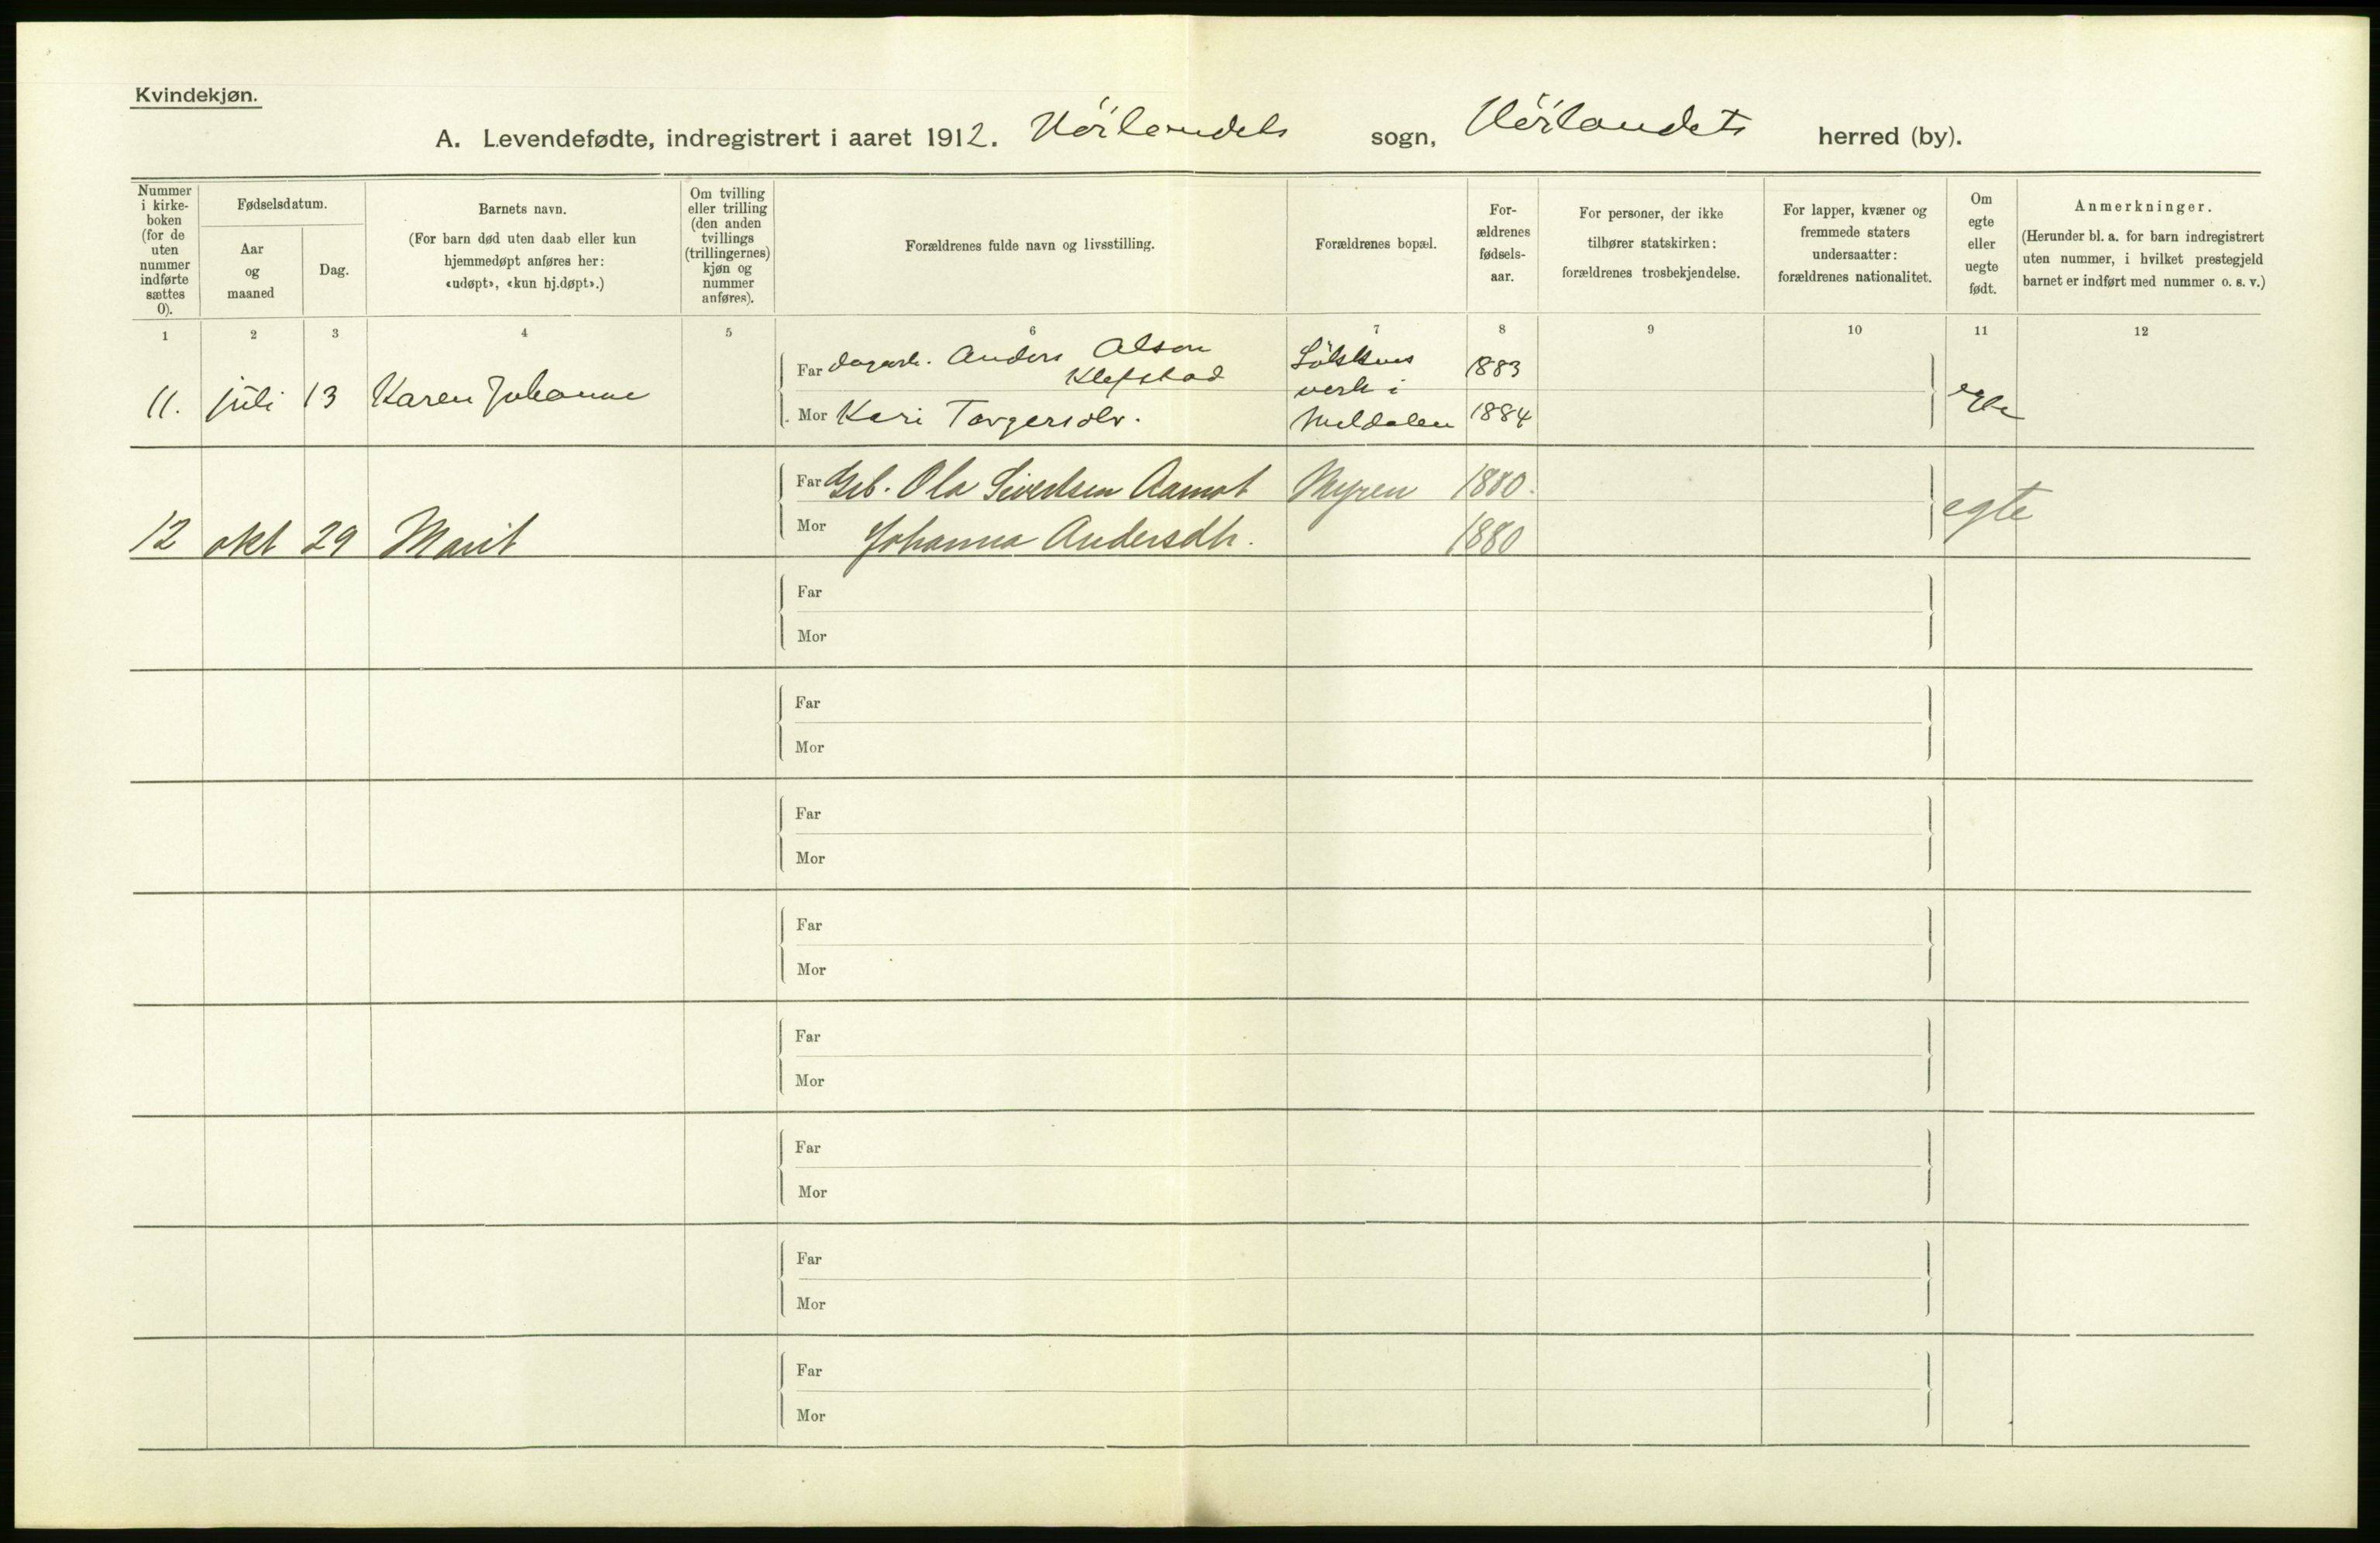 Kvindekjøn.
A. Levendefødte, indregistrert i aaret 1912. Hölandets sogn, Hölandets herred (by).
Nummer i kirke-boken (for de uten nummer indførte sættes 0).
Fødselsdatum.
Aar og maaned
Dag.
Barnets navn.
(For barn død uten daab eller kun
hjemmedøpt anføres her:
«udøpt», «kun hj.døpt».)
Om tvilling
eller trilling
(den anden
tvillings
(trillingernes)
kjøn og
nummer
anføres).
Forældrenes fulde navn og livsstilling.
Forældrenes bopæl.
For-
ældrenes
fødsels-
aar.
For personer, der ikke
tilhører statskirken:
forældrenes trosbekjendelse.
For lapper, kvæner og
fremmede staters
undersaatter:
forældrenes nationalitet.
Om
egte
eller
uegte
født.
Anmerkninger.
(Herunder bl. a. for barn indregistrert
uten nummer, i hvilket prestegjeld
barnet er indført med nummer o. s. v.)
1 2 3 4 5 6 7 8 9 10 11 12
11. juli 13 Karen Johanne
Far dagarb. Anders Olsen Klefstad
Løkkens verk i Meldalen
1883
Mor Kari Torgersdtr.
1884
egte
12 okt 29 Marit
Far Gbr. Ola Sivertsen Aamot Myren 1880.
Mor Johanna Andersdtr. 1880
egte
Far
Mor
Far
Mor
Far
Mor
Far
Mor
Far
Mor
Far
Mor
Far
Mor
Far
Mor